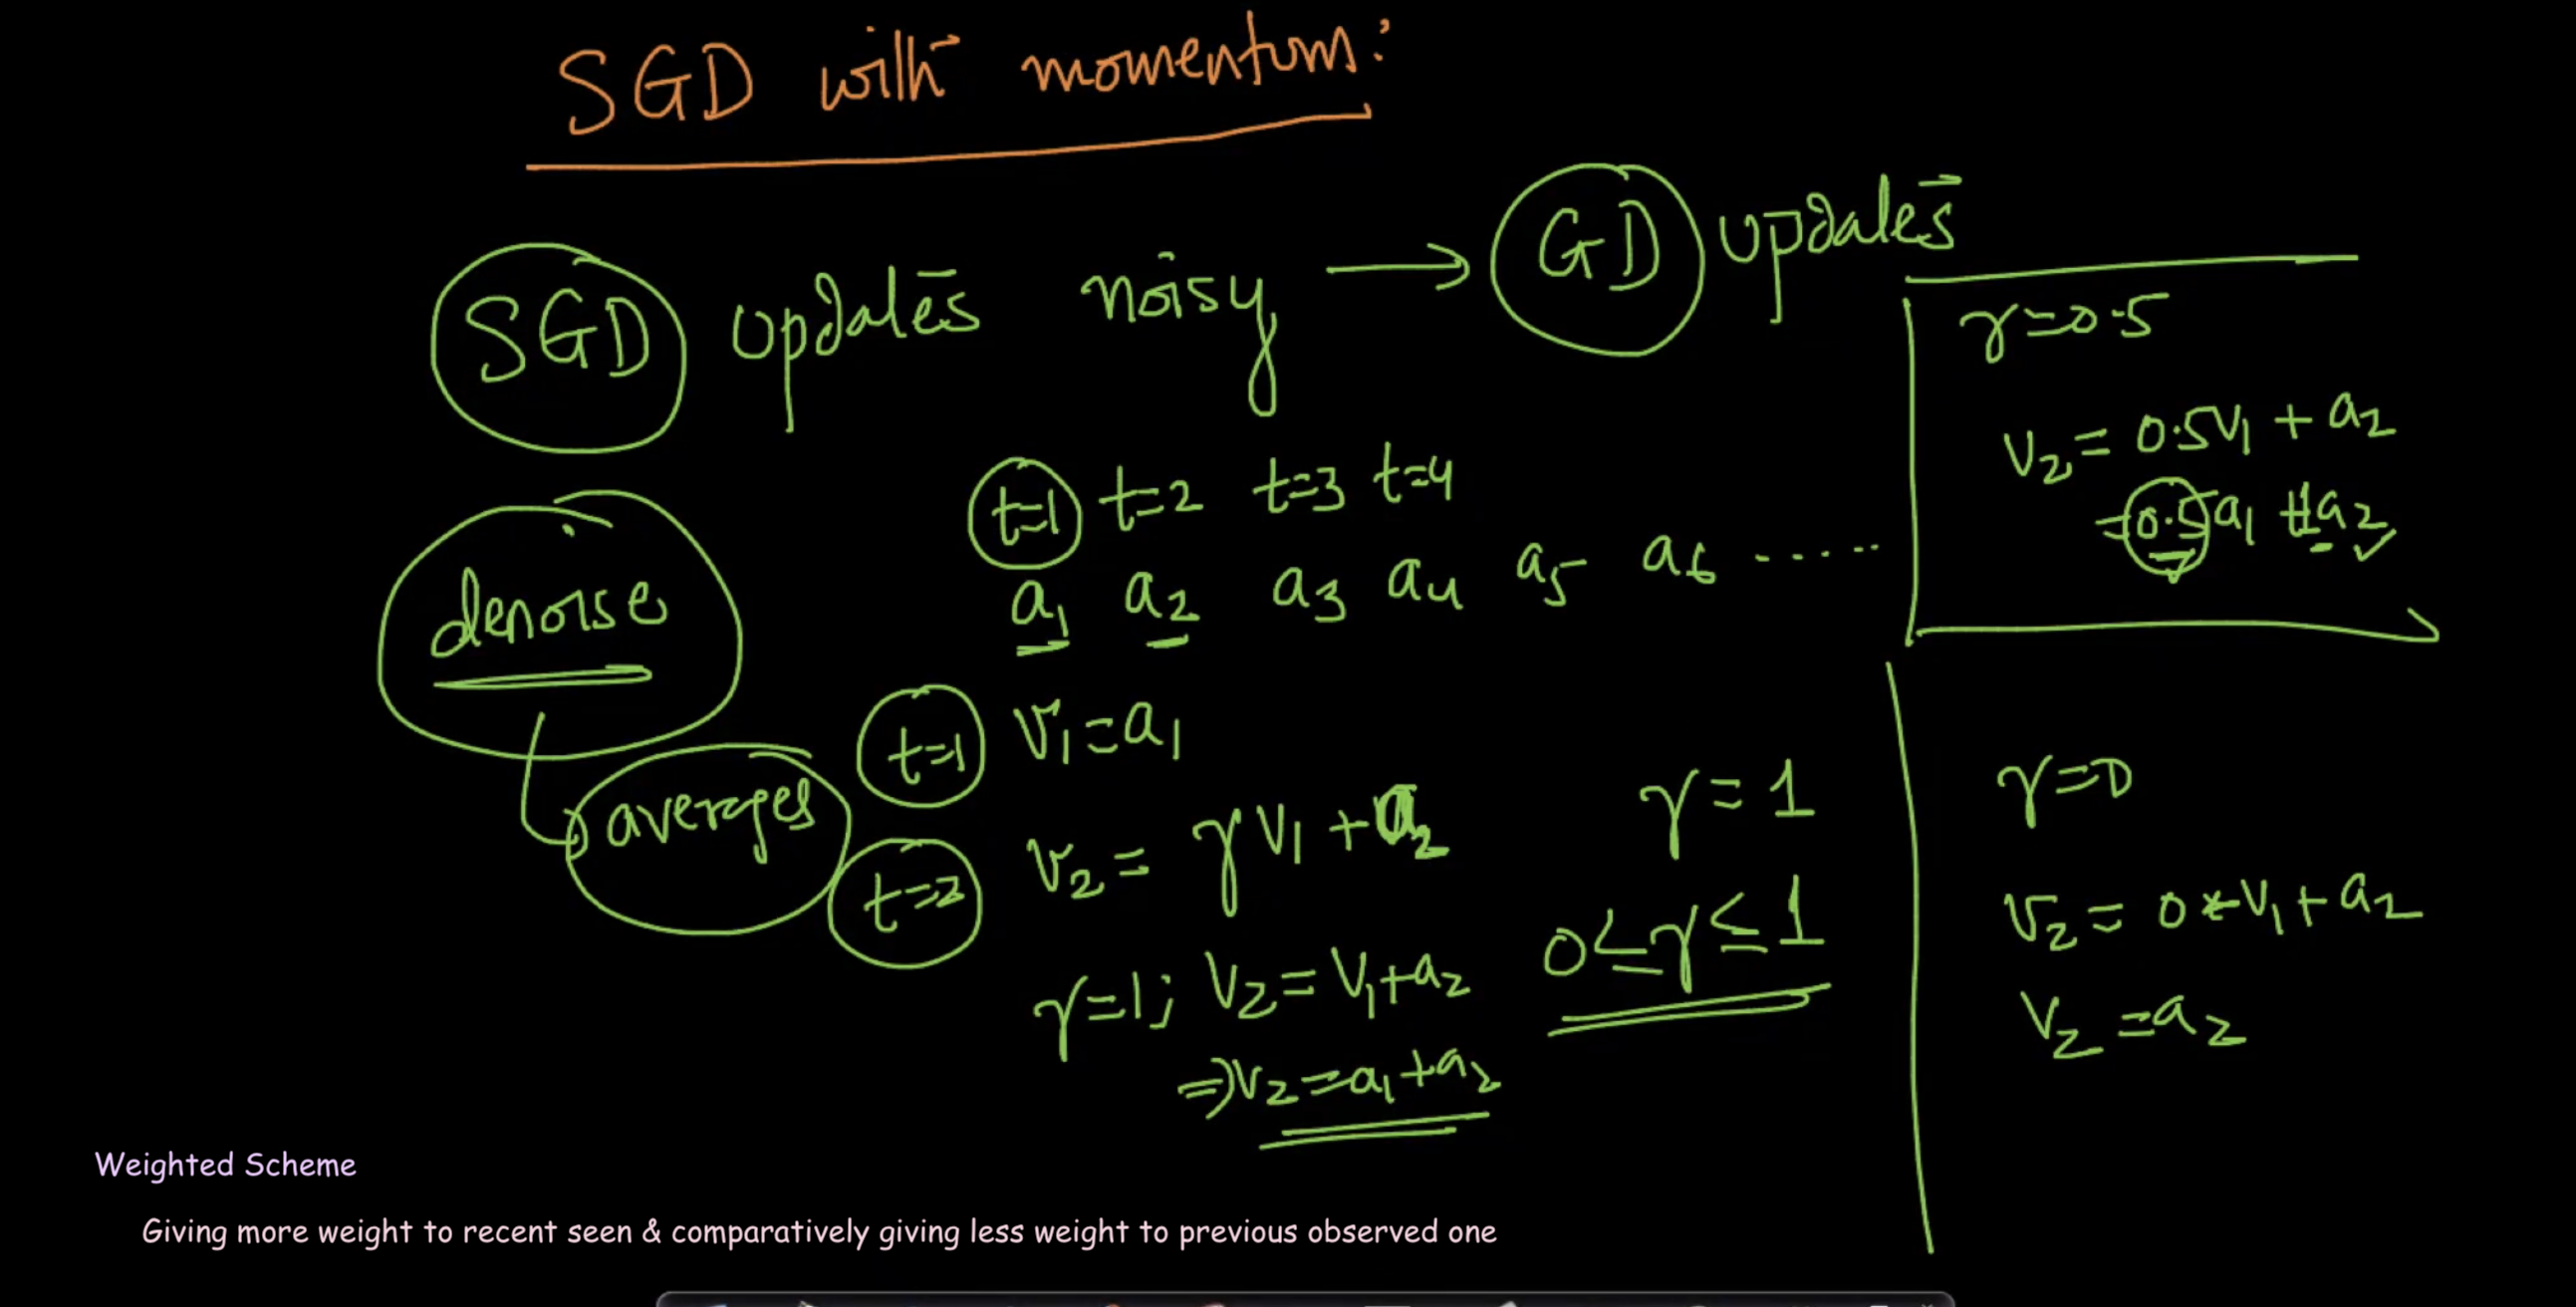 SGD with momentum:
SGD updates noisy → GD updates
denoise
averages
t=1 t=2 t=3 t=4
a₁ a₂ a₃ a₄ a₅ a₆ ......
t=1 v₁=a₁
t=2 v₂= γv₁+a₂
γ=1; v₂=v₁+a₂
⇒v₂=a₁+a₂
γ=1
0≤γ≤1
γ=0.5
v₂=0.5v₁+a₂
=0.5a₁+1a₂
γ=0
v₂=0*v₁+a₂
v₂=a₂
Weighted Scheme
Giving more weight to recent seen & comparatively giving less weight to previous observed one